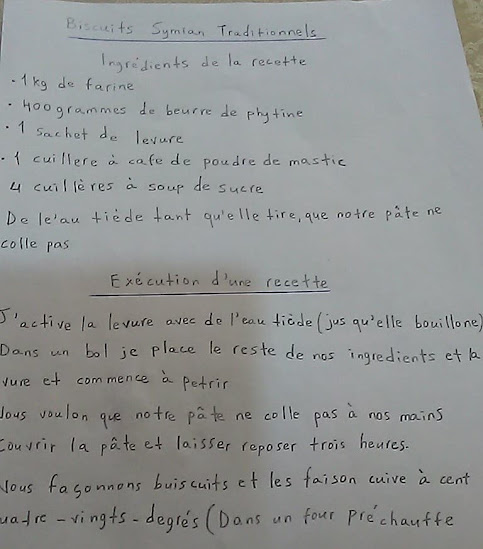 Biscuits Symian Traditionnels
Ingrédients de la recette
· 1 kg de farine
· 400 grammes de beurre de phytine
· 1 sachet de levure
· 1 cuillere à cafe de poudre de mastic
4 cuillères à soup de sucre
De le'au tiède tant qu'elle tire, que notre pâte ne
colle pas
Exécution d'une recette
J'active la levure avec de l'eau tiède (jus qu'elle bouillone)
Dans un bol je place le reste de nos ingredients et la
vure et commence à petrir
Nous voulon que notre pâte ne colle pas à nos mains
Couvrir la pâte et laisser reposer trois heures.
Nous façonnons buiscuits et les faison cuive à cent
uatre-vingts-degrés (Dans un four préchauffe